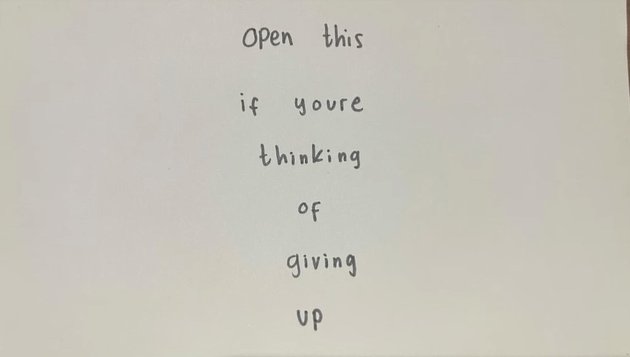 open this
if youre
thinking
of
giving
up